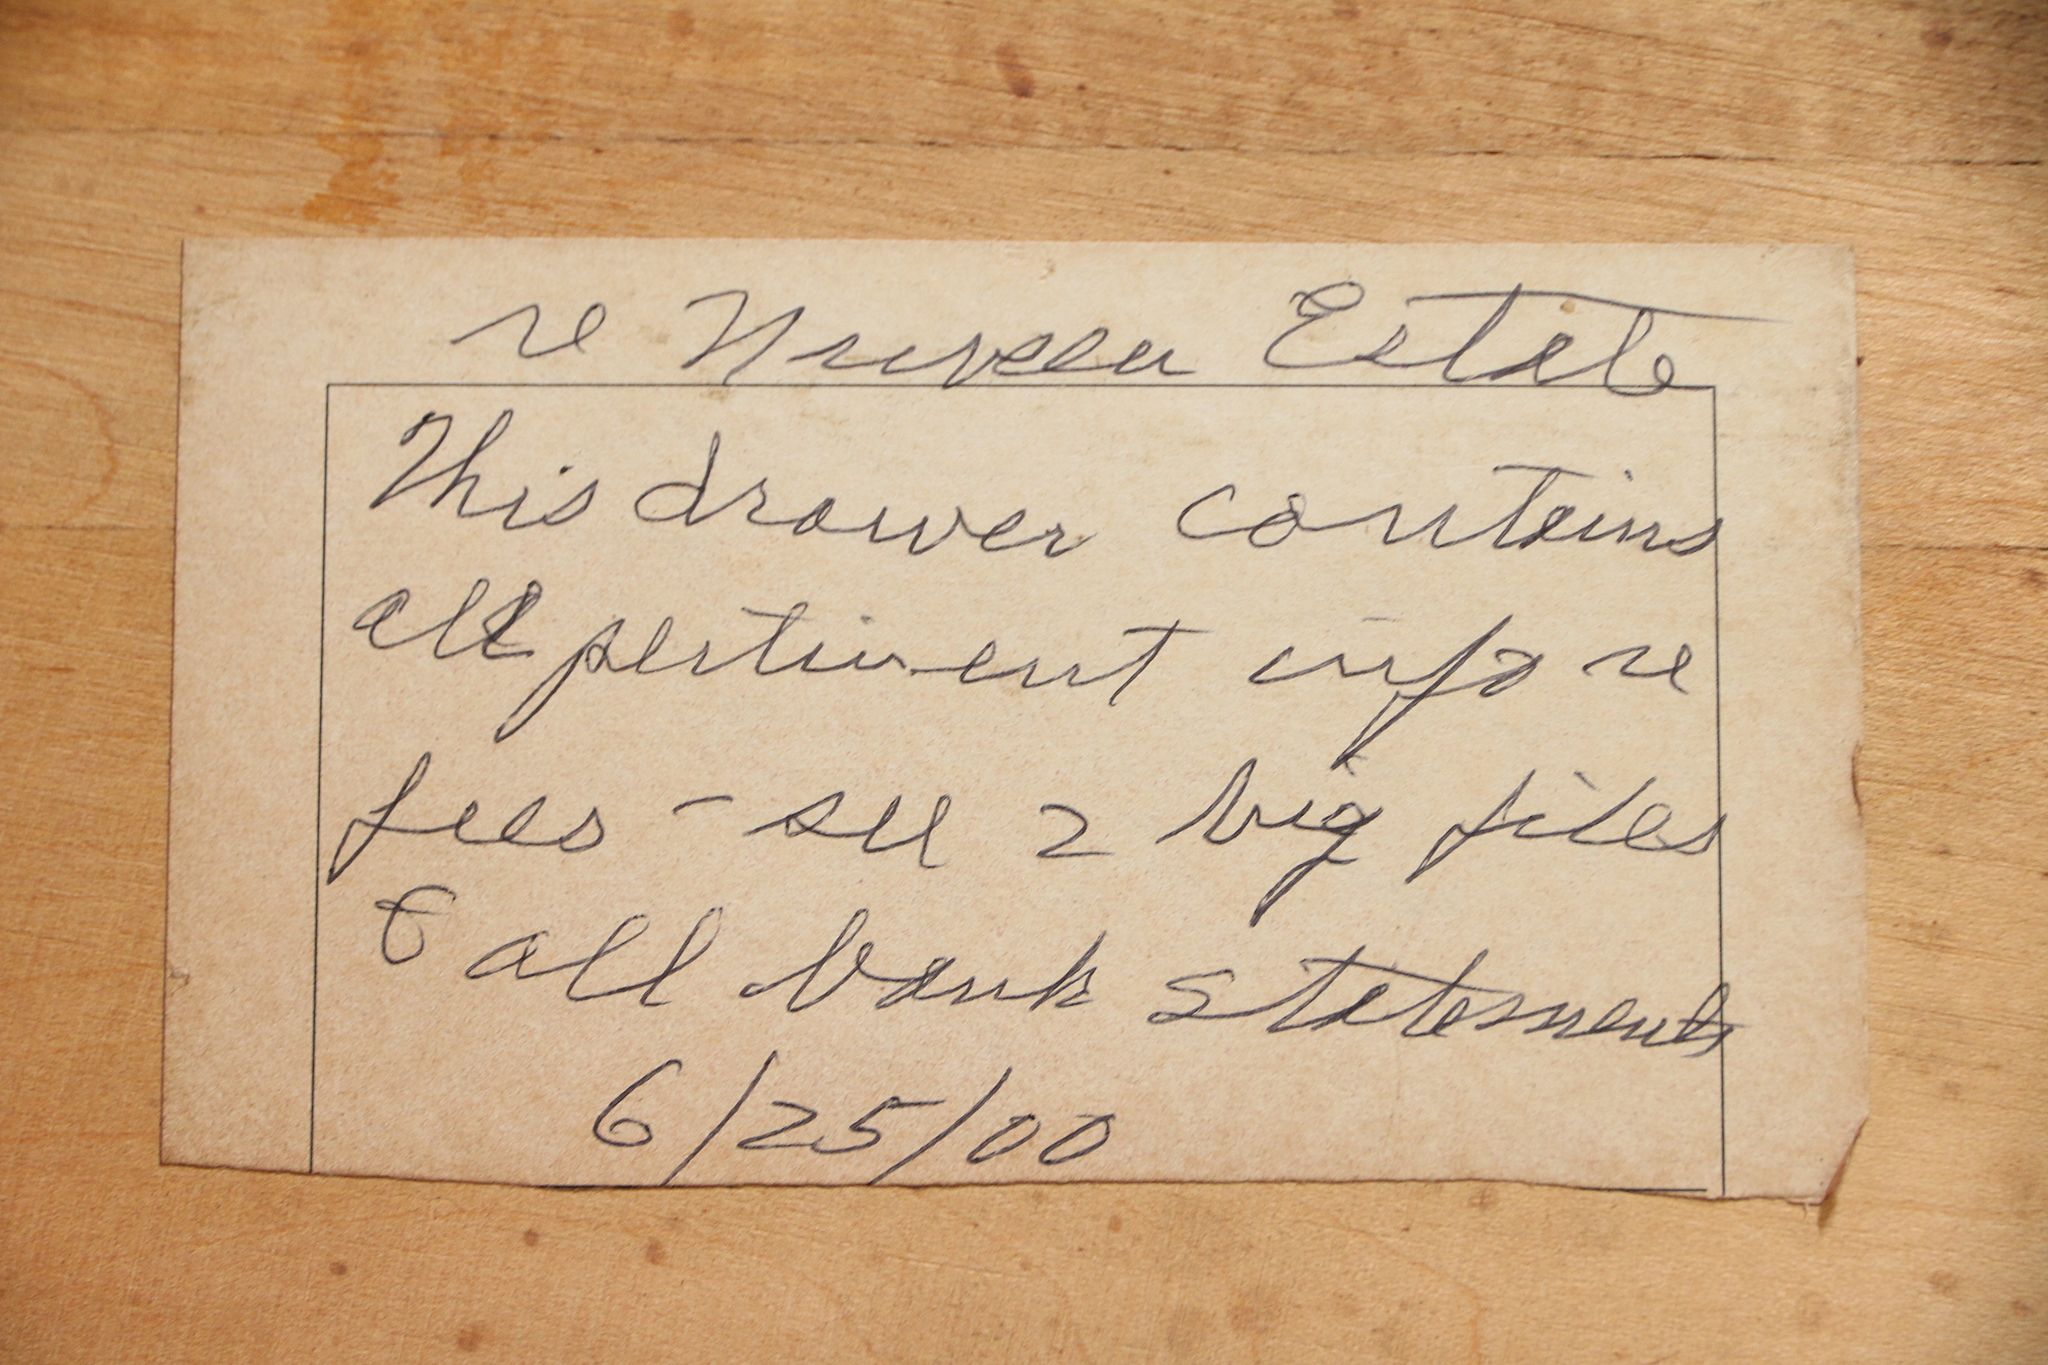 re Nuveen Estate
This drawer contains
all pertinent info re
fees - see 2 big files
& all bank statements
6/25/00